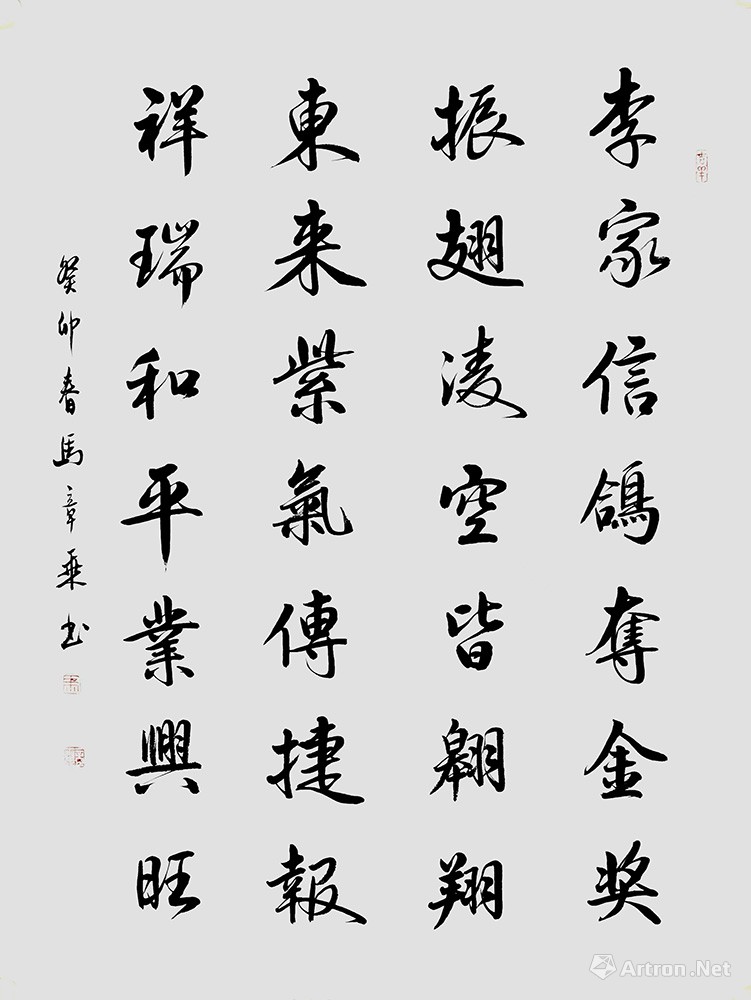 李家信鴿奪金奖
振翅凌空皆翱翔
東来紫氣傳捷報
祥瑞和平業興旺
癸卯春馬章乘书
Artron.Net